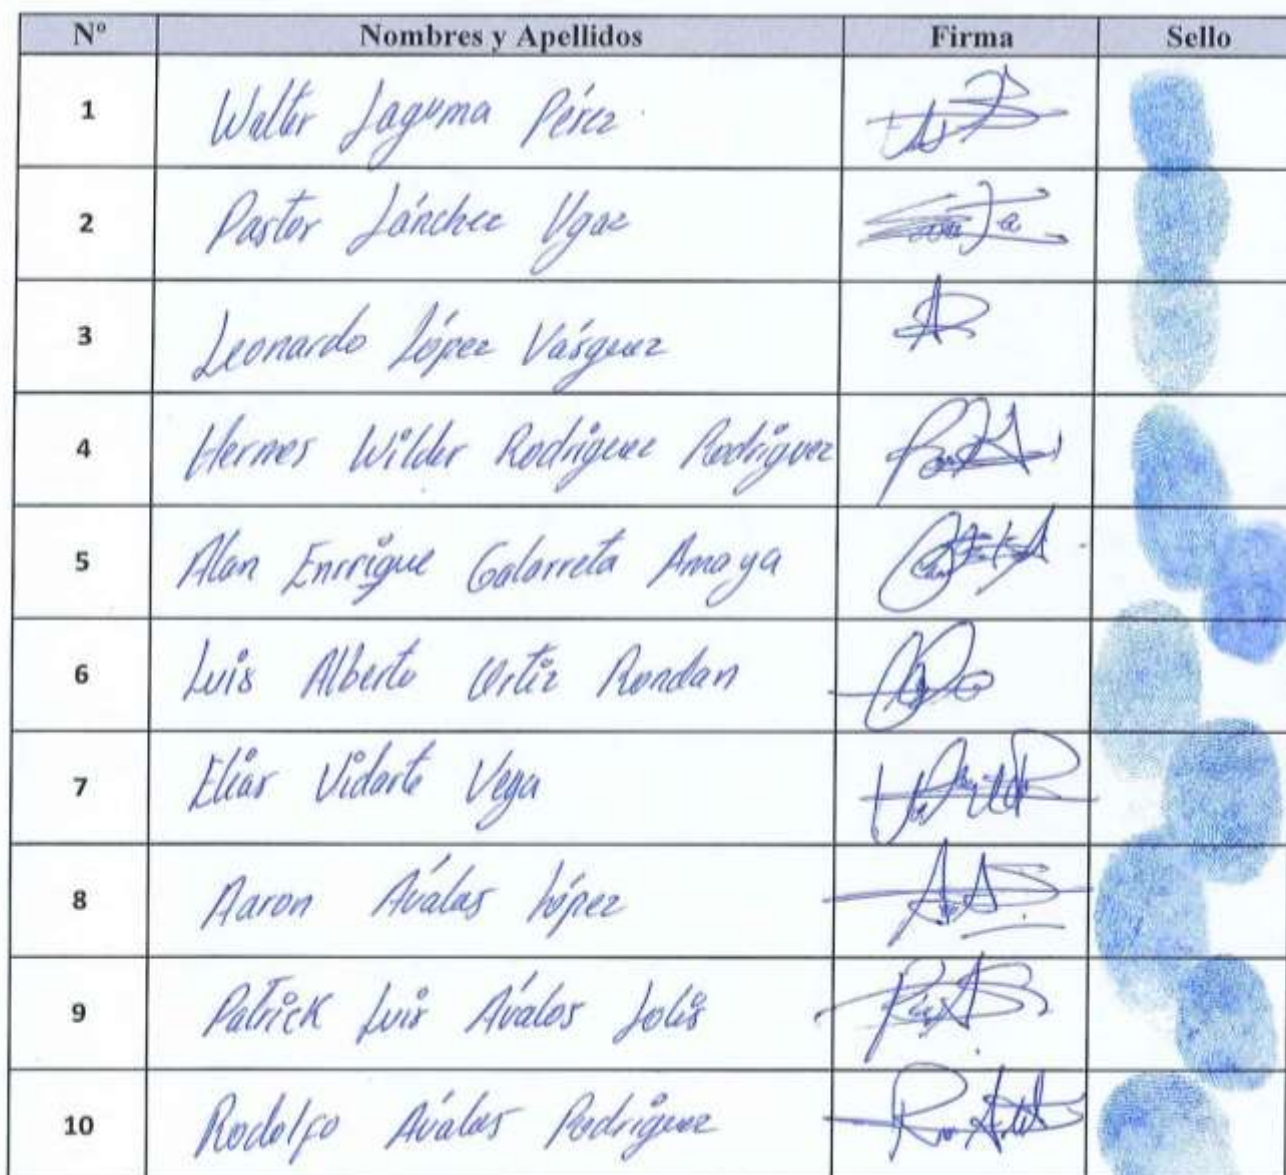 Nº Nombres y Apellidos Firma Sello
1 Walter Laguma Pérez
2 Pastor Sánchez Ugaz
3 Leonardo López Vásquez
4 Hermes Wilder Rodriguez Rodriguez
5 Alan Enrrique Galarreta Amaya
6 Luis Alberto Ortiz Rondan
7 Elias Vidarte Vega
8 Aaron Ávalos López
9 Patrick Luis Ávalos Solis
10 Rodolfo Ávalos Rodriguez